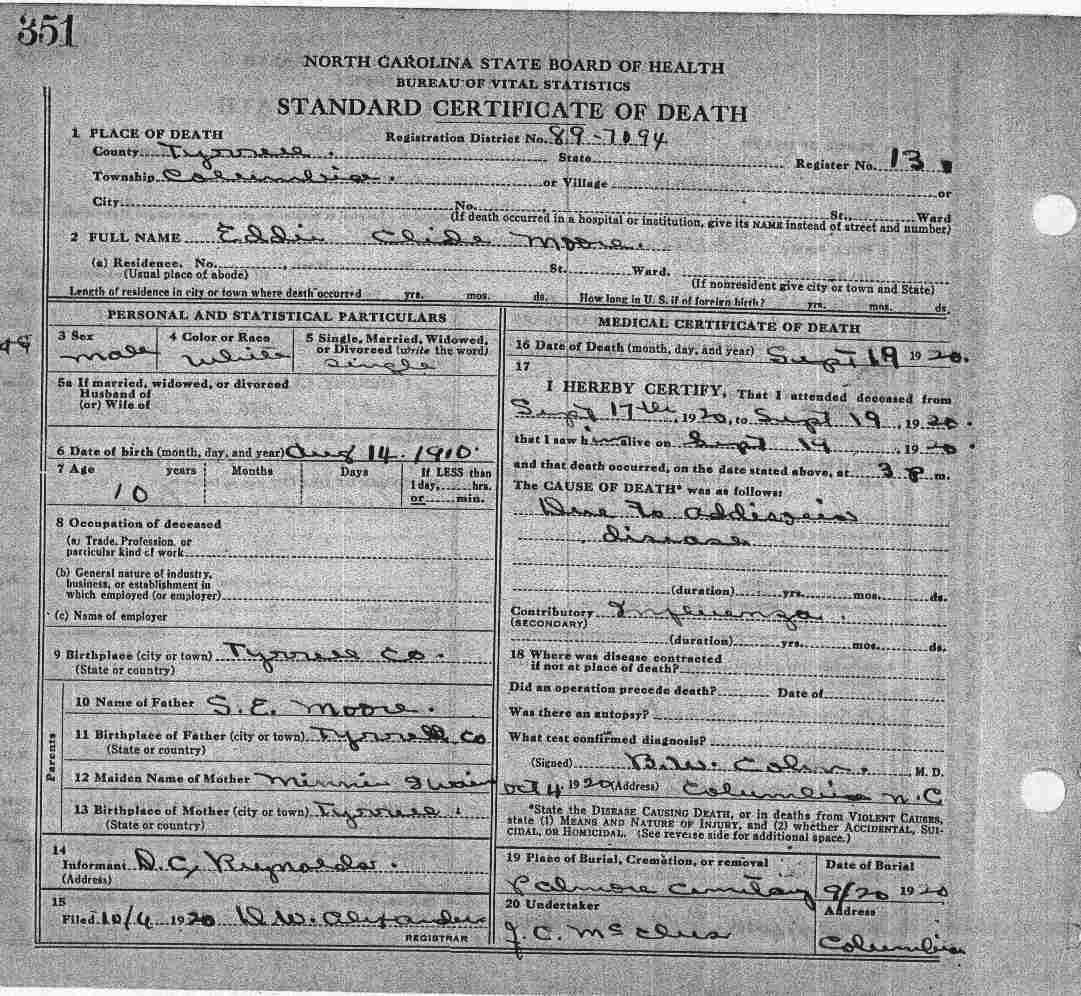 351
NORTH CAROLINA STATE BOARD OF HEALTH
BUREAU OF VITAL STATISTICS
STANDARD CERTIFICATE OF DEATH
1 PLACE OF DEATH Registration District No. 89-7094
County Tyrrell. State Register No. 13
Township Columbia. or Village or
City No. St., Ward
(If death occurred in a hospital or institution, give its NAME instead of street and number)
2 FULL NAME Eddie Clide Moore.
(a) Residence. No. St. Ward.
(Usual place of abode) (If nonresident give city or town and State)
Length of residence in city or town where death occurred yrs. mos. ds. How long in U. S. if of foreign birth? yrs. mos. ds.
PERSONAL AND STATISTICAL PARTICULARS
3 Sex 4 Color or Race 5 Single, Married, Widowed,
or Divorced (write the word)
male White Single
5a If married, widowed, or divorced
Husband of
(or) Wife of
6 Date of birth (month, day, and year) Aug 14. 1910.
7 Age years Months Days If LESS than
1 day, hrs.
10 or min.
8 Occupation of deceased
(a) Trade, Profession, or
particular kind of work
(b) General nature of industry,
business, or establishment in
which employed (or employer)
(c) Name of employer
9 Birthplace (city or town) Tyrrell Co.
(State or country)
Parents
10 Name of Father S. E. Moore.
11 Birthplace of Father (city or town) Tyrrell Co
(State or country)
12 Maiden Name of Mother Minnie Swain
13 Birthplace of Mother (city or town) Tyrrell.
(State or country)
14
Informant D. C. Reynolds.
(Address)
15
Filed 10/4 1920 D. W. Alexander
REGISTRAR
MEDICAL CERTIFICATE OF DEATH
16 Date of Death (month, day, and year) Sept 19 1920.
17
I HEREBY CERTIFY, That I attended deceased from
Sept 17th, 1920, to Sept 19, 1920.
that I saw him alive on Sept 19, 1920
and that death occurred, on the date stated above, at 3 P m.
The CAUSE OF DEATH* was as follows:
Due to
disease
(duration) yrs. mos. ds.
Contributory Influenza.
(SECONDARY)
(duration) yrs. mos. ds.
18 Where was disease contracted
if not at place of death?
Did an operation precede death? Date of
Was there an autopsy?
What test confirmed diagnosis?
(Signed) M. D.
Oct 4 1920 (Address) Columbia N.C
*State the DISEASE CAUSING DEATH, or in deaths from VIOLENT CAUSES,
state (1) MEANS AND NATURE OF INJURY, and (2) whether ACCIDENTAL, SUI-
CIDAL, OR HOMICIDAL. (See reverse side for additional space.)
19 Place of Burial, Cremation, or removal Date of Burial
Cemetery 9/20 1920
20 Undertaker Address
J. C. Columbia